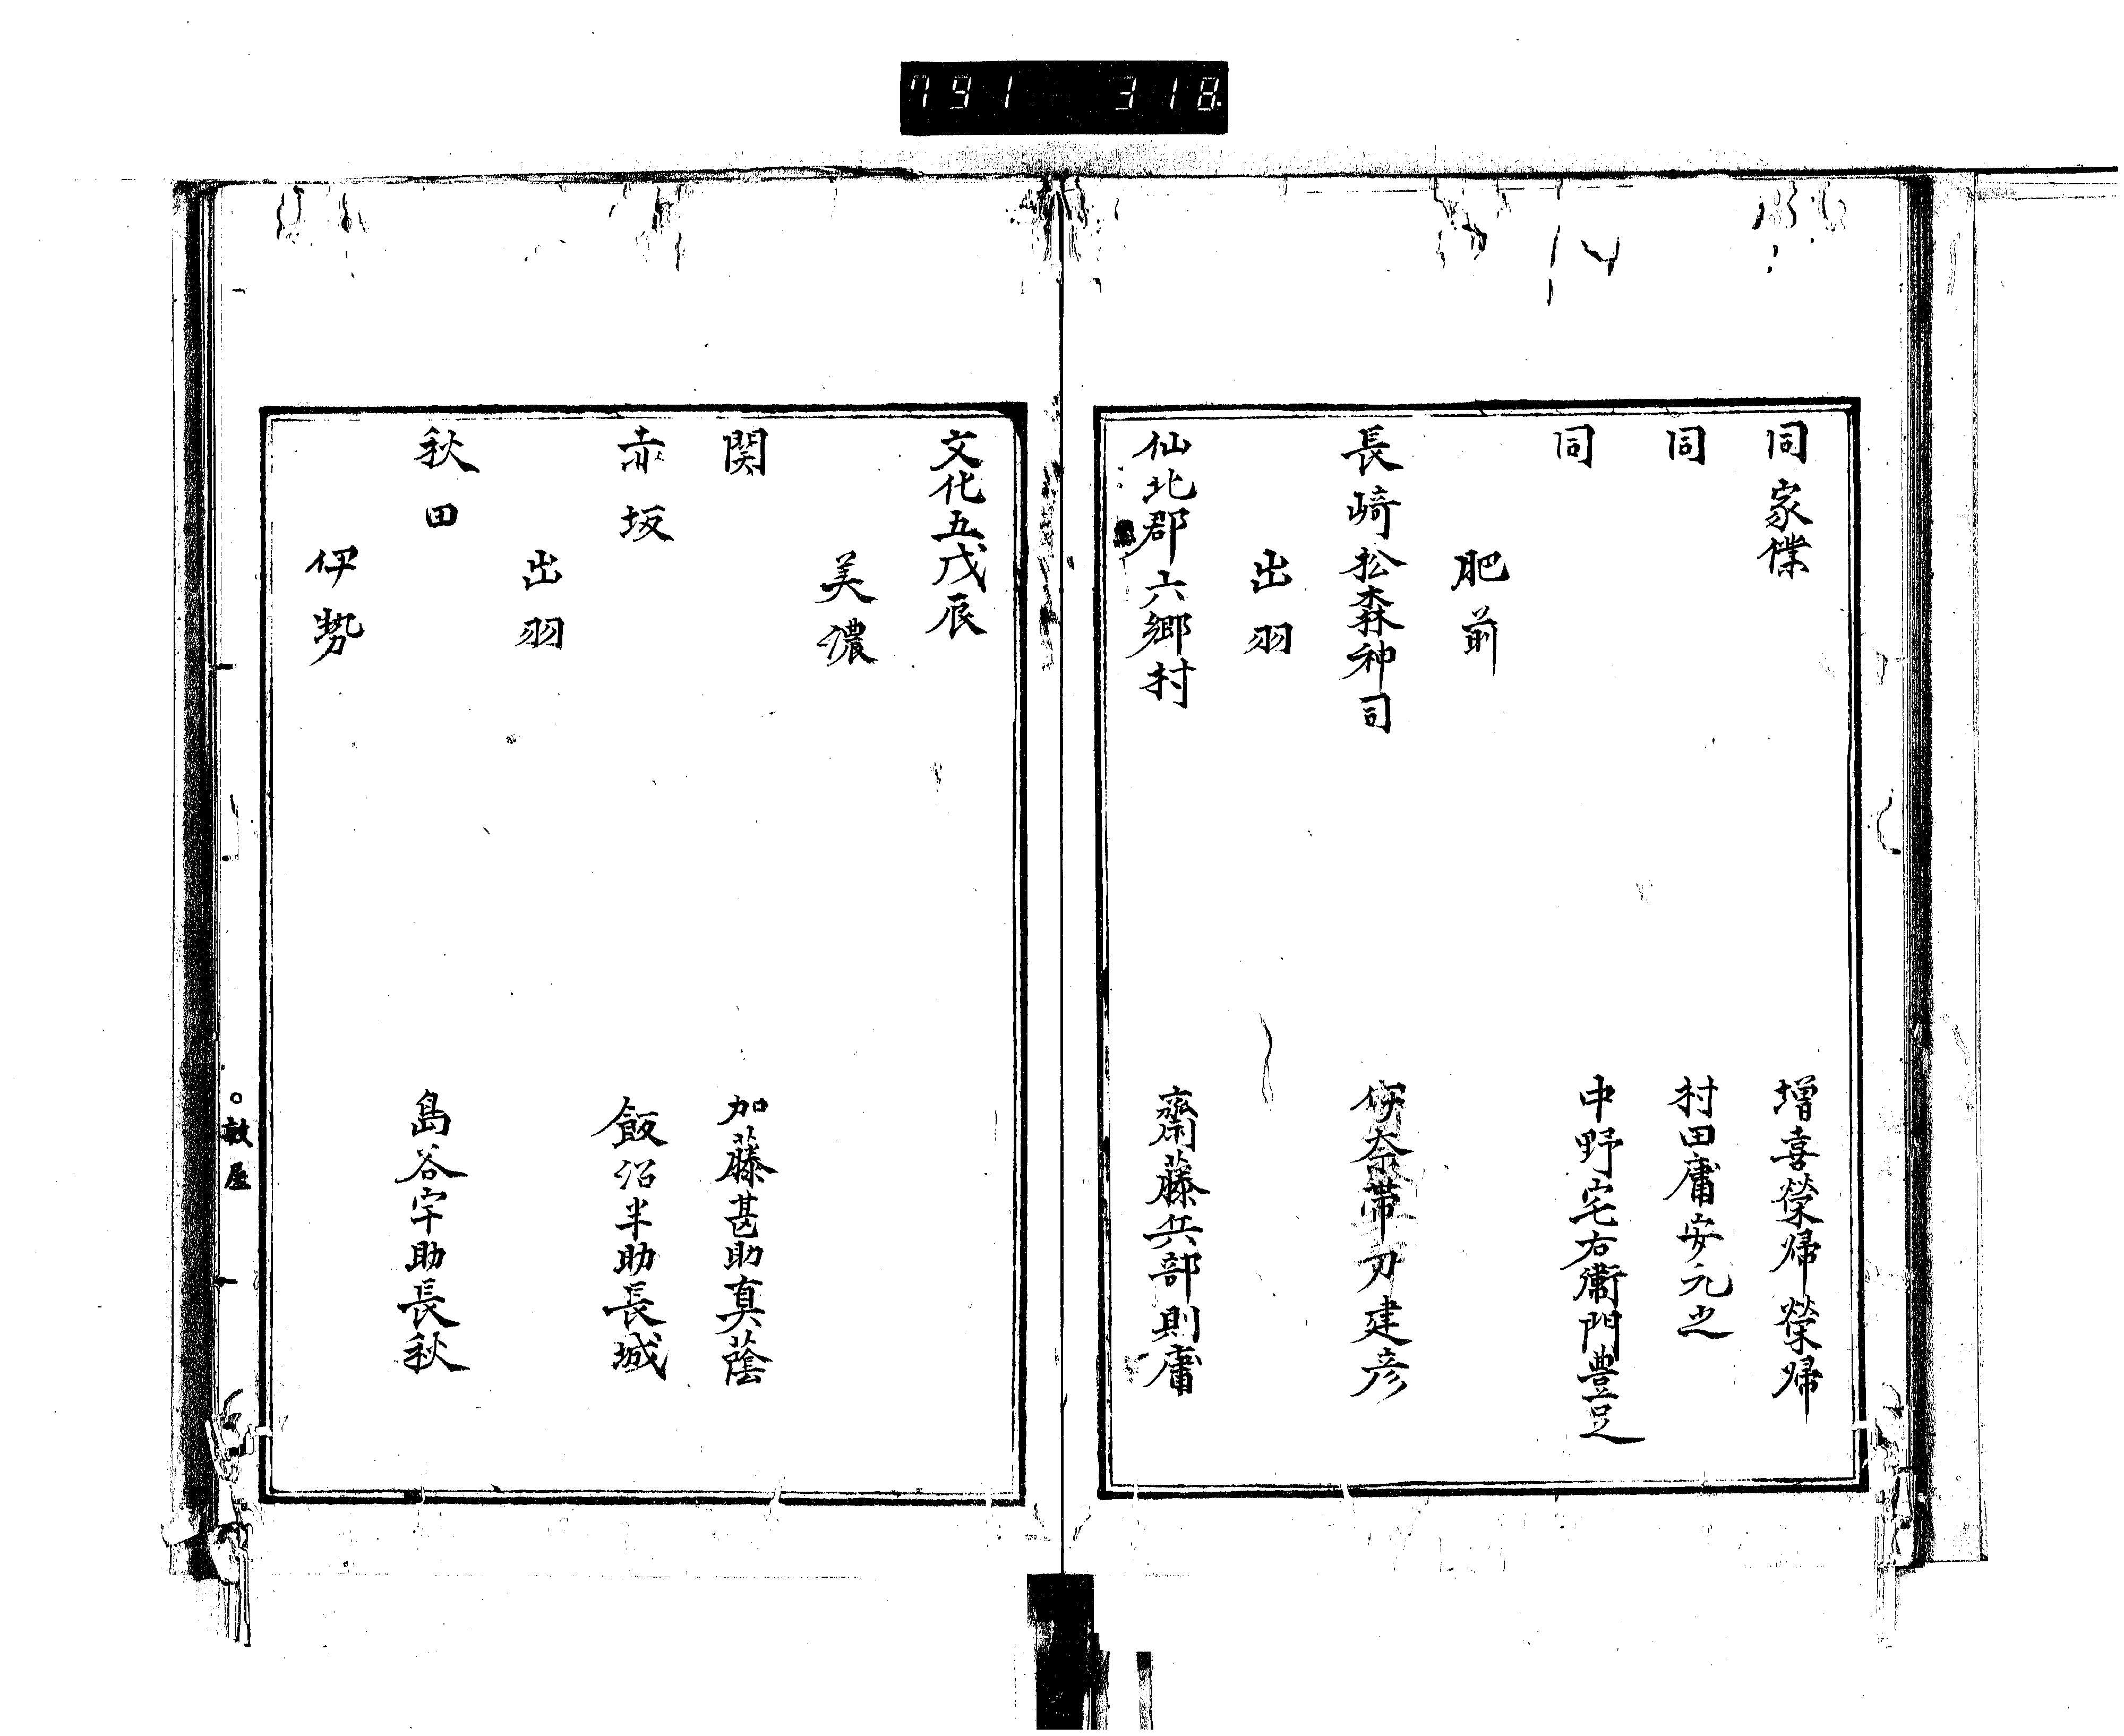 791 318
同家僕 增喜榮帰榮帰
同 村田庸安元之
同 中野宅右衛門豊足
肥前
長崎松森神司 伊奈帯刀建彦
出羽
仙北郡六郷村 齋藤兵部則庸
文化五戊辰
美濃
関 加藤甚助真蔭
赤坂 飯沼半助長城
出羽
秋田 島谷宇助長秋
伊勢